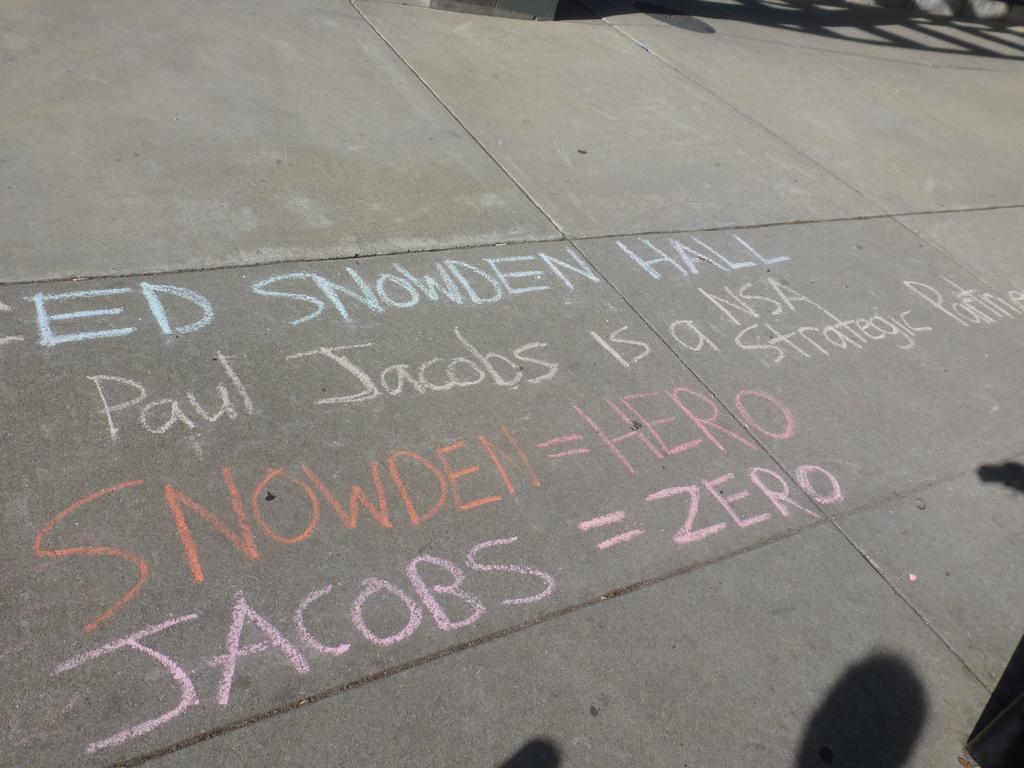 ED SNOWDEN HALL
Paul Jacobs is a NSA Strategic
SNOWDEN = HERO
JACOBS = ZERO